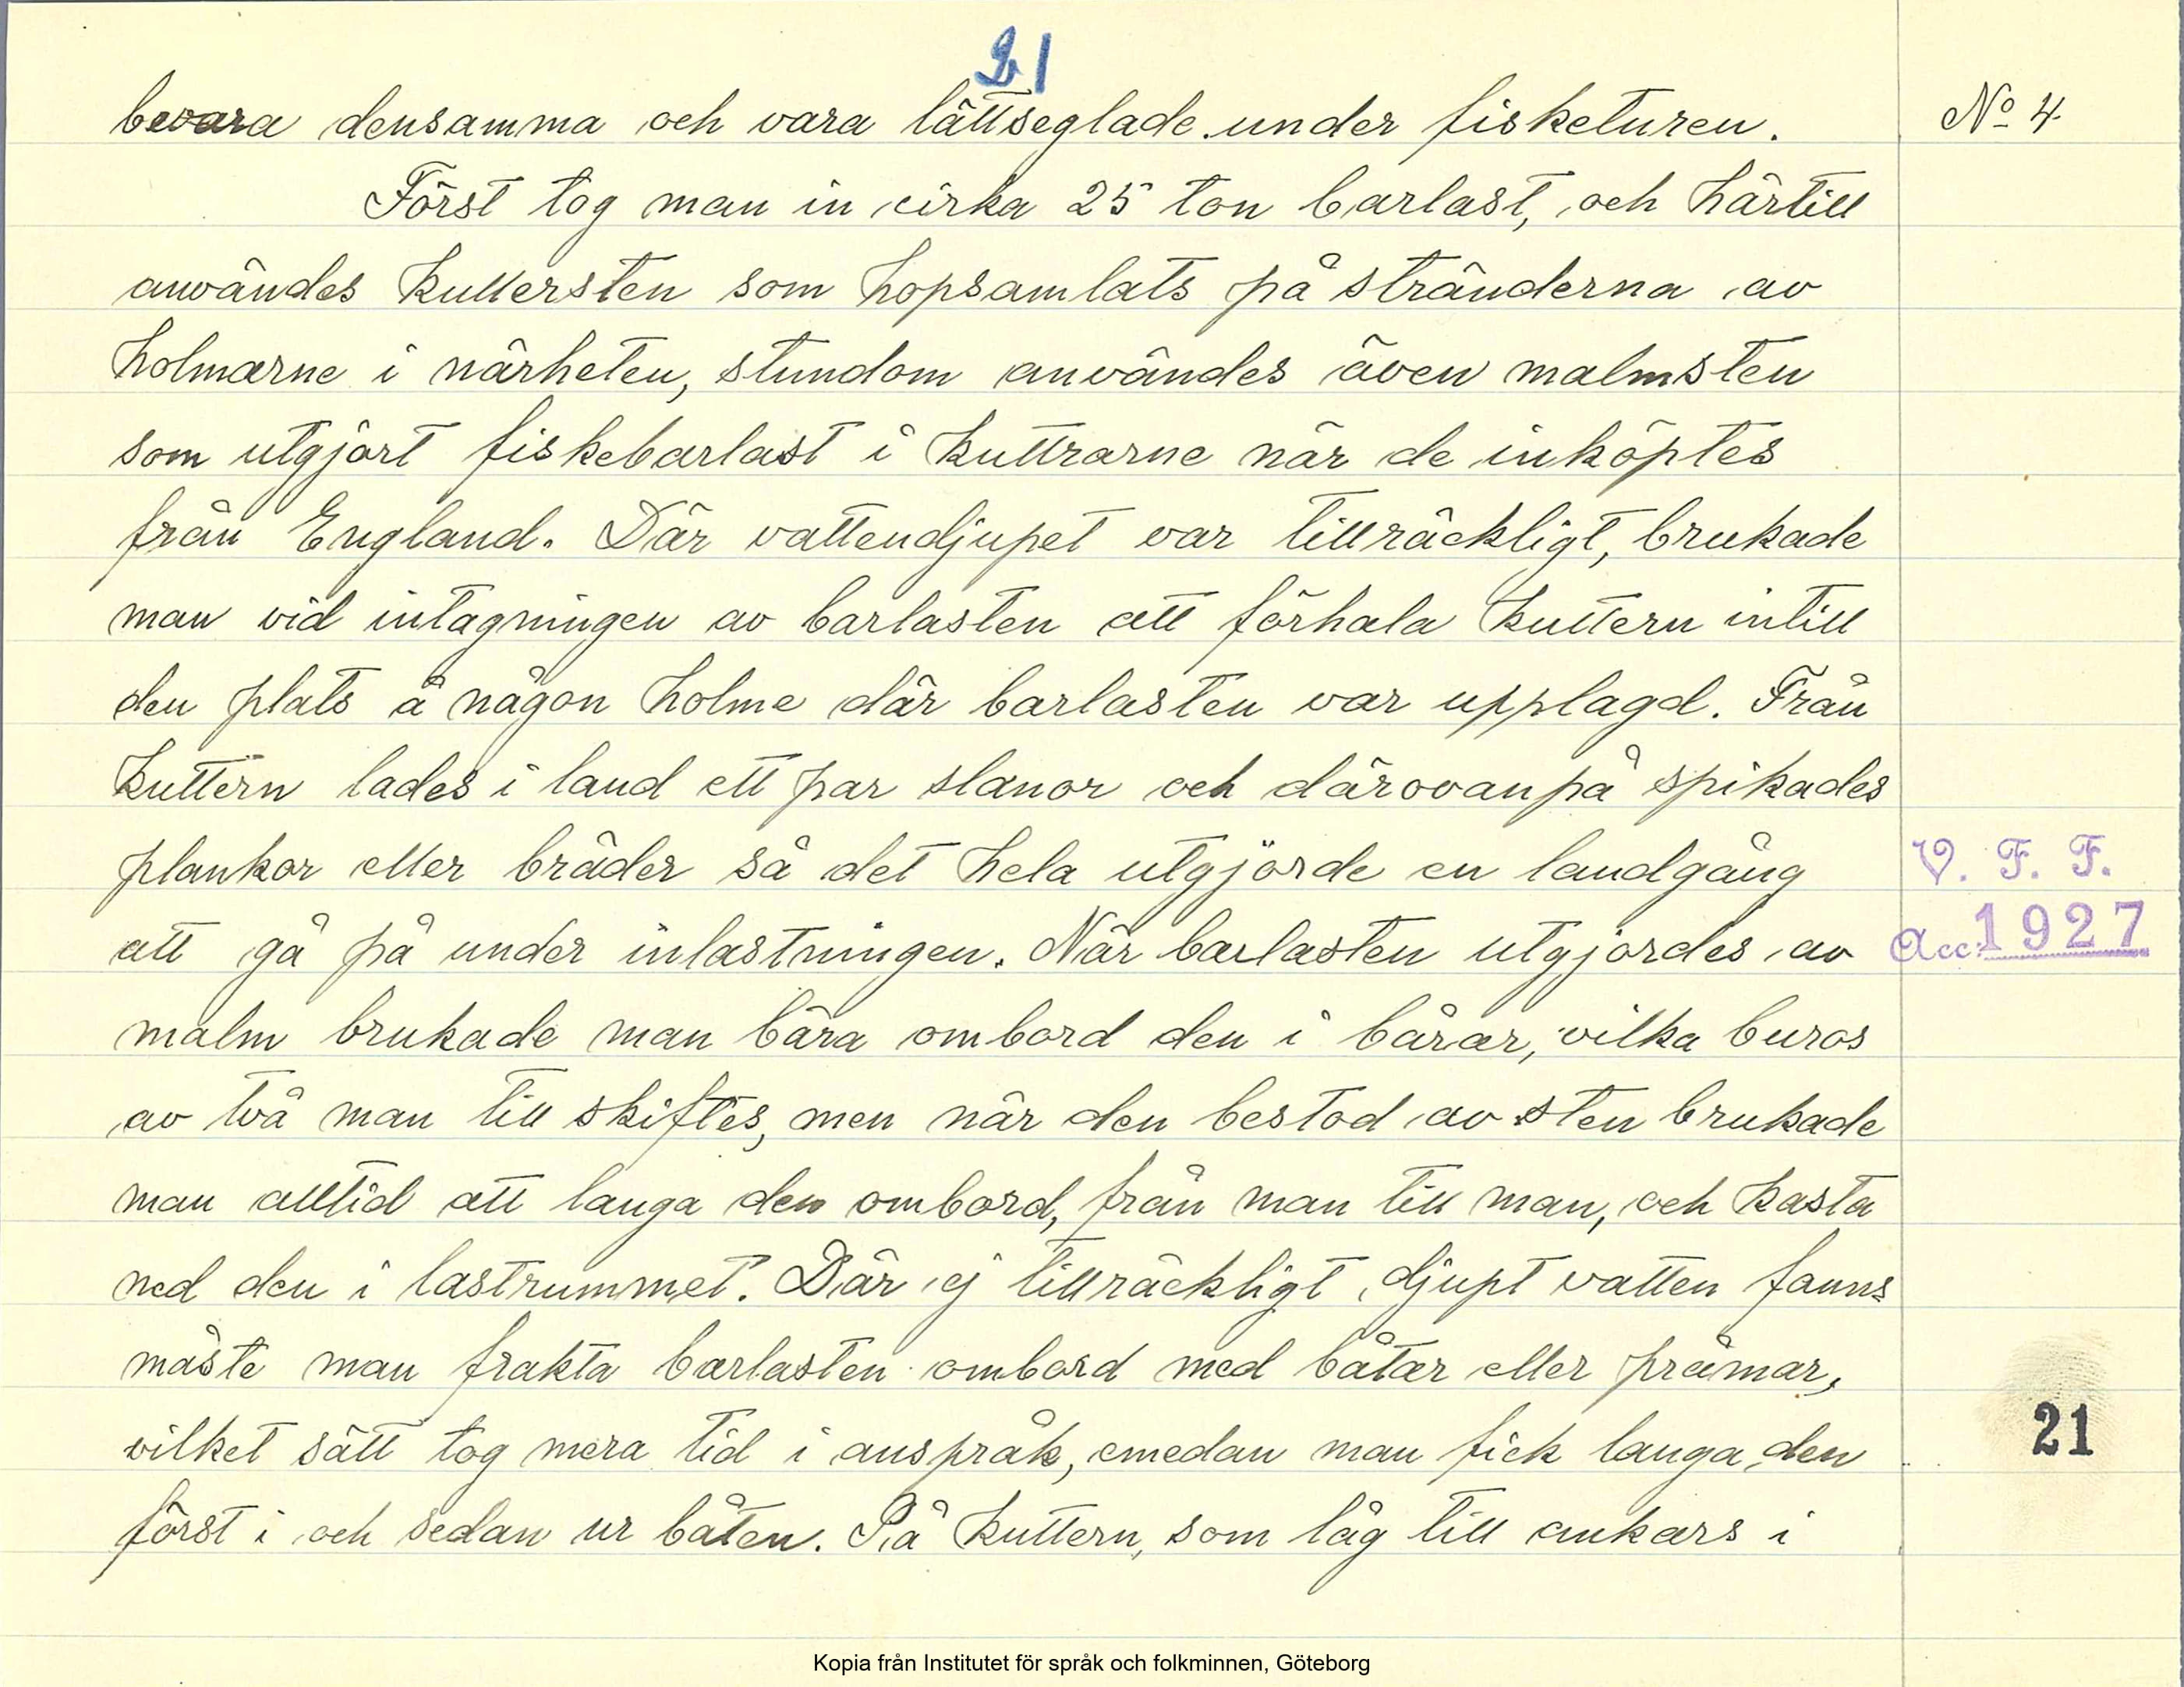 21
bevara densamma och vara lättseglade under fisketuren.
No 4.
Först tog man in cirka 25 ton barlast, och härtill
användes kullersten som hopsamlats på stränderna av
holmarne i närheten, stundom användes även malmsten
som utgjort fiskebarlast i kuttrarne när de inköptes
från England. Där vattendjupet var tillräckligt, brukade
man vid intagningen av barlasten att förhala kuttern intill
den plats å någon holme där barlasten var upplagd. Från
kuttern lades i land ett par slanor och därovanpå spikades
plankor eller bräder så det hela utgjorde en landgång
V. F. F.
att gå på under inlastningen. När barlasten utgjordes av
Acc. 1927
malm brukade man bära ombord den i bårar, vilka buros
av två man till skiftes, men när den bestod av sten brukade
man alltid att langa den ombord, från man till man, och kasta
ned den i lastrummet. Där ej tillräckligt djupt vatten fanns
måste man frakta barlasten ombord med båtar eller pråmar,
vilket sätt tog mera tid i anspråk, emedan man fick langa den
21
först i och sedan ur båten. På kuttern, som låg till ankars i
Kopia från Institutet för språk och folkminnen, Göteborg